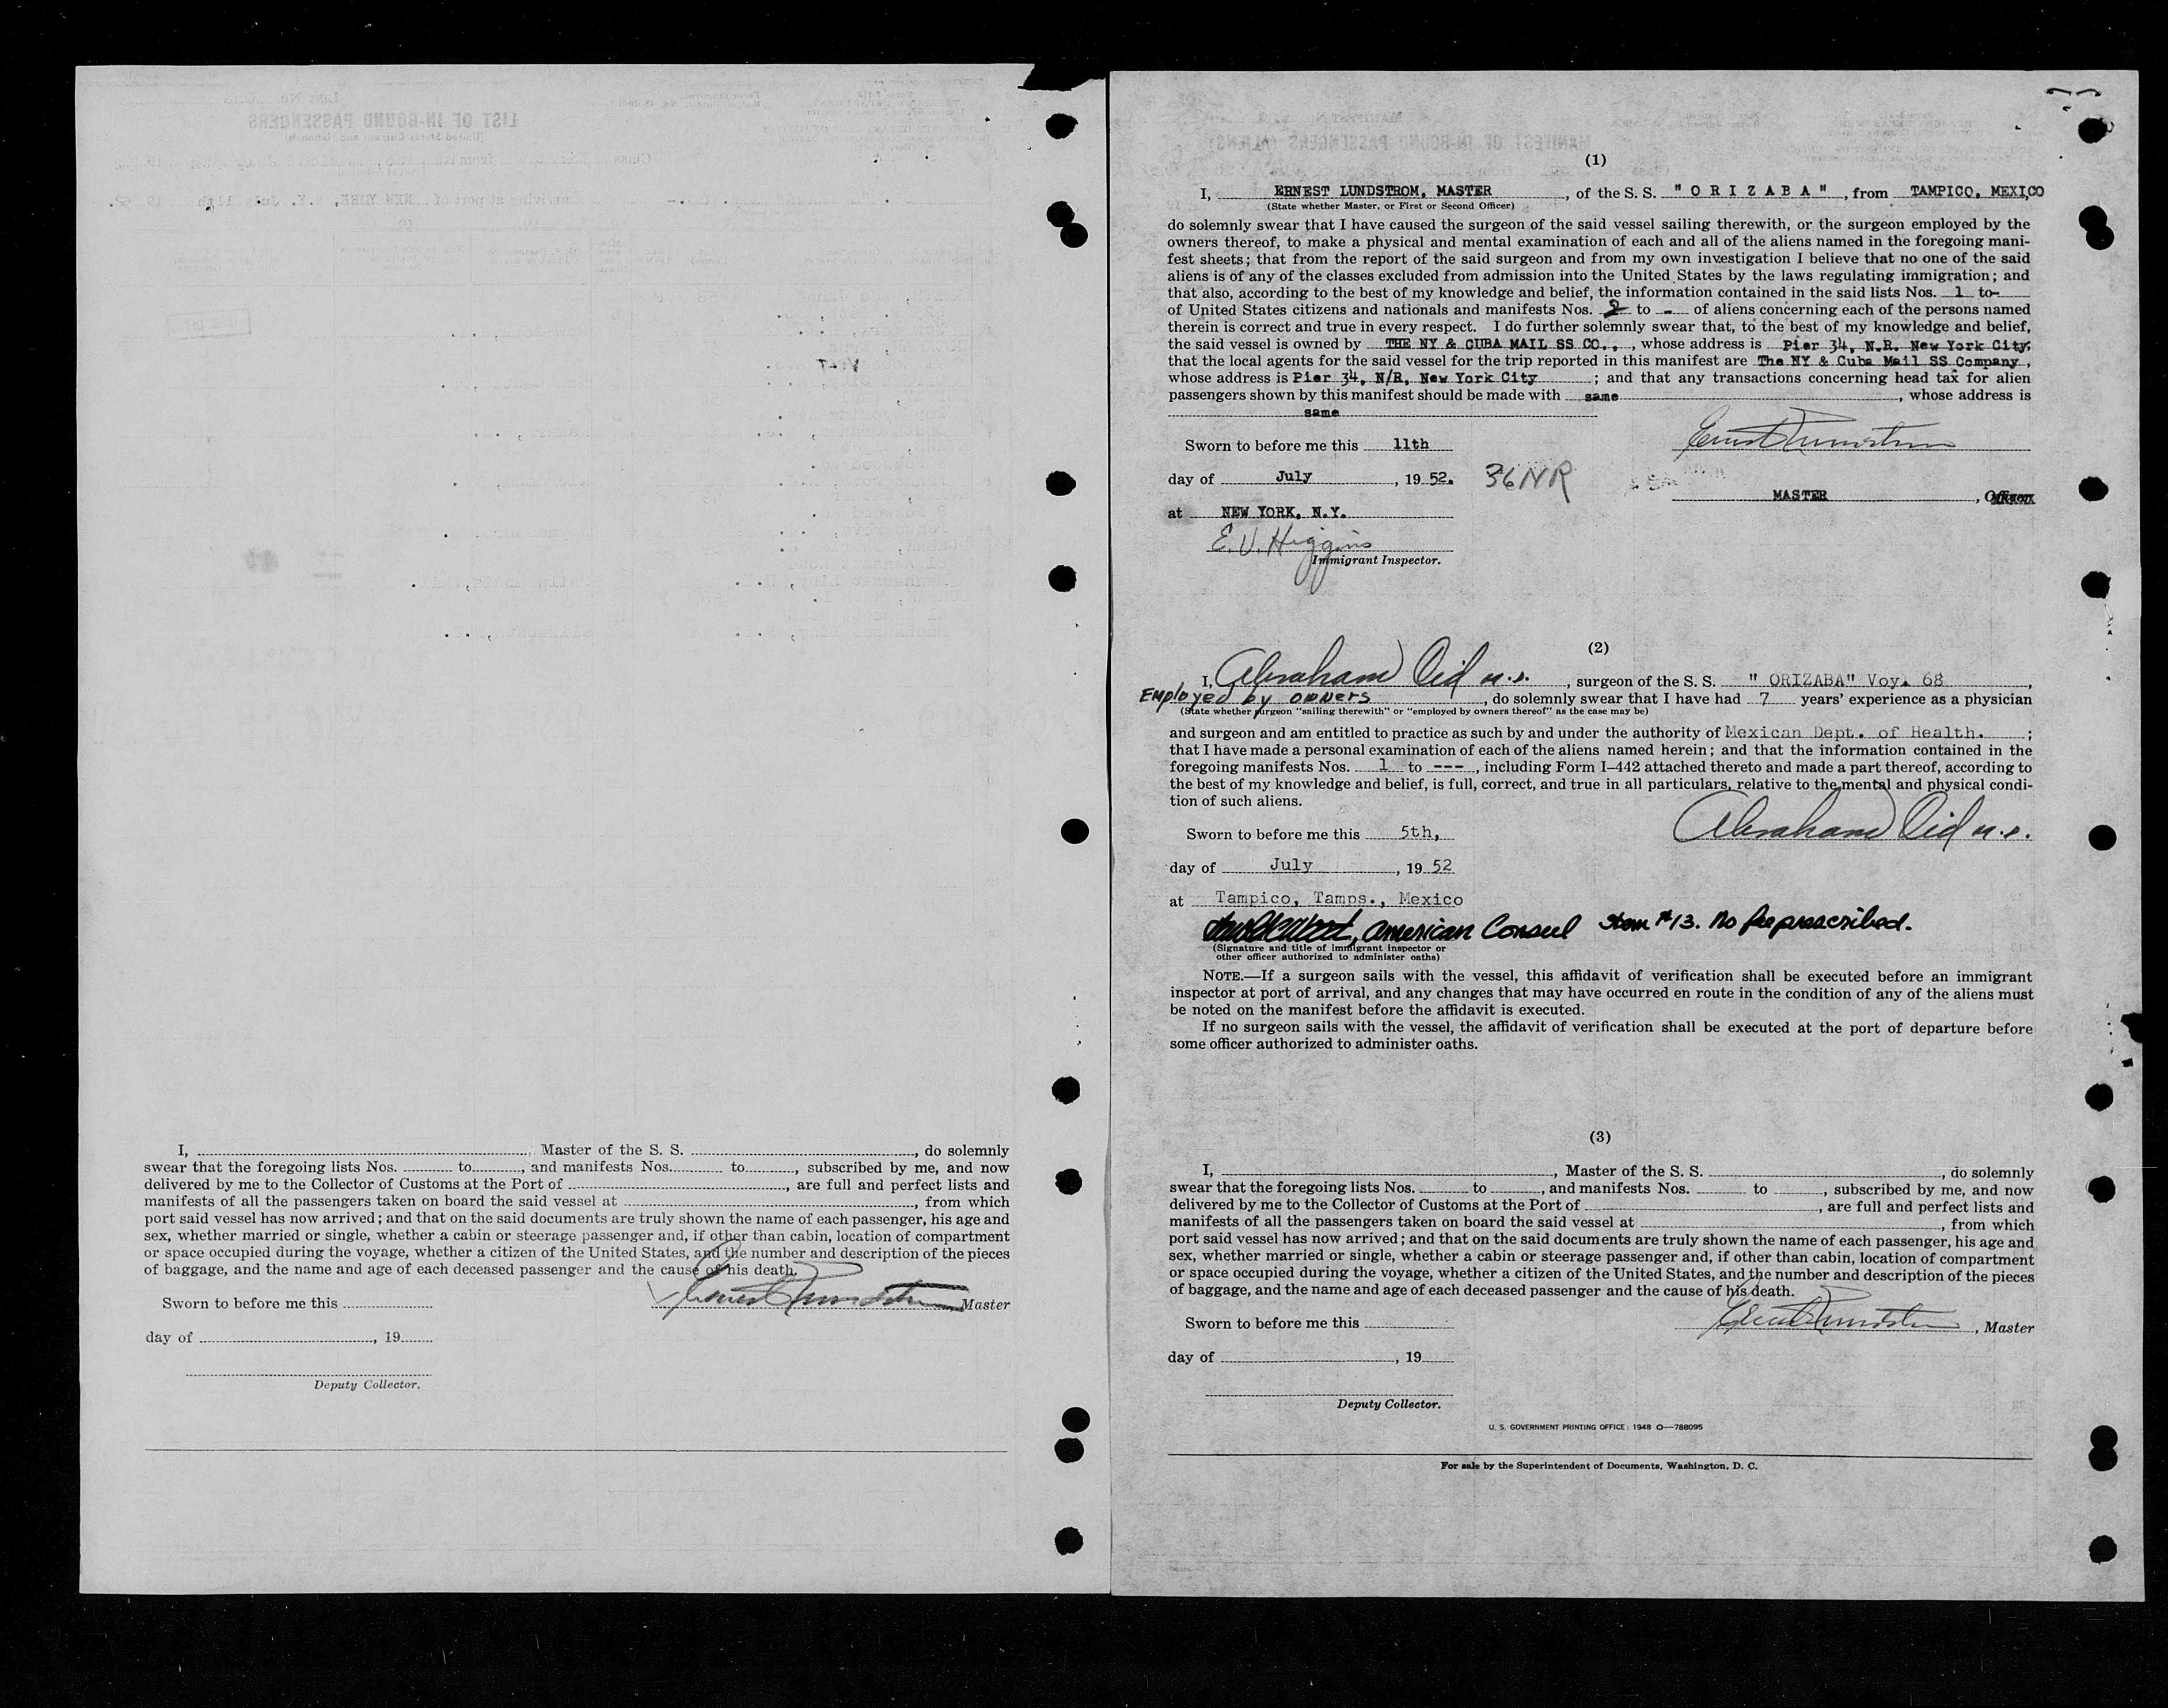 I, , Master of the S. S. , do solemnly
swear that the foregoing lists Nos. to , and manifests Nos. to , subscribed by me, and now
delivered by me to the Collector of Customs at the Port of , are full and perfect lists and
manifests of all the passengers taken on board the said vessel at , from which
port said vessel has now arrived; and that on the said documents are truly shown the name of each passenger, his age and
sex, whether married or single, whether a cabin or steerage passenger and, if other than cabin, location of compartment
or space occupied during the voyage, whether a citizen of the United States, and the number and description of the pieces
of baggage, and the name and age of each deceased passenger and the cause of his death.
Sworn to before me this
Master
day of , 19
Deputy Collector.
(1)
I, ERNEST LUNDSTROM, MASTER , of the S. S. "O R I Z A B A" , from TAMPICO, MEXICO
(State whether Master, or First or Second Officer)
do solemnly swear that I have caused the surgeon of the said vessel sailing therewith, or the surgeon employed by the
owners thereof, to make a physical and mental examination of each and all of the aliens named in the foregoing mani-
fest sheets; that from the report of the said surgeon and from my own investigation I believe that no one of the said
aliens is of any of the classes excluded from admission into the United States by the laws regulating immigration; and
that also, according to the best of my knowledge and belief, the information contained in the said lists Nos. 1 to -
of United States citizens and nationals and manifests Nos. 2 to - of aliens concerning each of the persons named
therein is correct and true in every respect. I do further solemnly swear that, to the best of my knowledge and belief,
the said vessel is owned by THE NY & CUBA MAIL SS CO., , whose address is Pier 34, N.R. New York City;
that the local agents for the said vessel for the trip reported in this manifest are The NY & Cuba Mail SS Company ,
whose address is Pier 34, N/R, New York City ; and that any transactions concerning head tax for alien
passengers shown by this manifest should be made with same , whose address is
same
Sworn to before me this 11th
Ernest Lundstrom
day of July , 19 52. 36NR
MASTER , Officer
at NEW YORK, N.Y.
E. V. Higgins
Immigrant Inspector.
(2)
I, Abraham Cid M.D. , surgeon of the S. S. " ORIZABA" Voy. 68 ,
Employed by owners , do solemnly swear that I have had 7 years' experience as a physician
(State whether surgeon "sailing therewith" or "employed by owners thereof" as the case may be)
and surgeon and am entitled to practice as such by and under the authority of Mexican Dept. of Health. ;
that I have made a personal examination of each of the aliens named herein; and that the information contained in the
foregoing manifests Nos. 1 to --- , including Form I–442 attached thereto and made a part thereof, according to
the best of my knowledge and belief, is full, correct, and true in all particulars, relative to the mental and physical condi-
tion of such aliens.
Sworn to before me this 5th,
Abraham Cid M.D.
day of July , 19 52
at Tampico, Tamps., Mexico
American Consul Item #13. No fee prescribed.
(Signature and title of immigrant inspector or
other officer authorized to administer oaths)
NOTE.—If a surgeon sails with the vessel, this affidavit of verification shall be executed before an immigrant
inspector at port of arrival, and any changes that may have occurred en route in the condition of any of the aliens must
be noted on the manifest before the affidavit is executed.
If no surgeon sails with the vessel, the affidavit of verification shall be executed at the port of departure before
some officer authorized to administer oaths.
(3)
I, , Master of the S. S. , do solemnly
swear that the foregoing lists Nos. to , and manifests Nos. to , subscribed by me, and now
delivered by me to the Collector of Customs at the Port of , are full and perfect lists and
manifests of all the passengers taken on board the said vessel at , from which
port said vessel has now arrived; and that on the said documents are truly shown the name of each passenger, his age and
sex, whether married or single, whether a cabin or steerage passenger and, if other than cabin, location of compartment
or space occupied during the voyage, whether a citizen of the United States, and the number and description of the pieces
of baggage, and the name and age of each deceased passenger and the cause of his death.
Sworn to before me this
Ernest Lundstrom , Master
day of , 19
Deputy Collector.
U. S. GOVERNMENT PRINTING OFFICE : 1948 O—788095
For sale by the Superintendent of Documents, Washington, D. C.